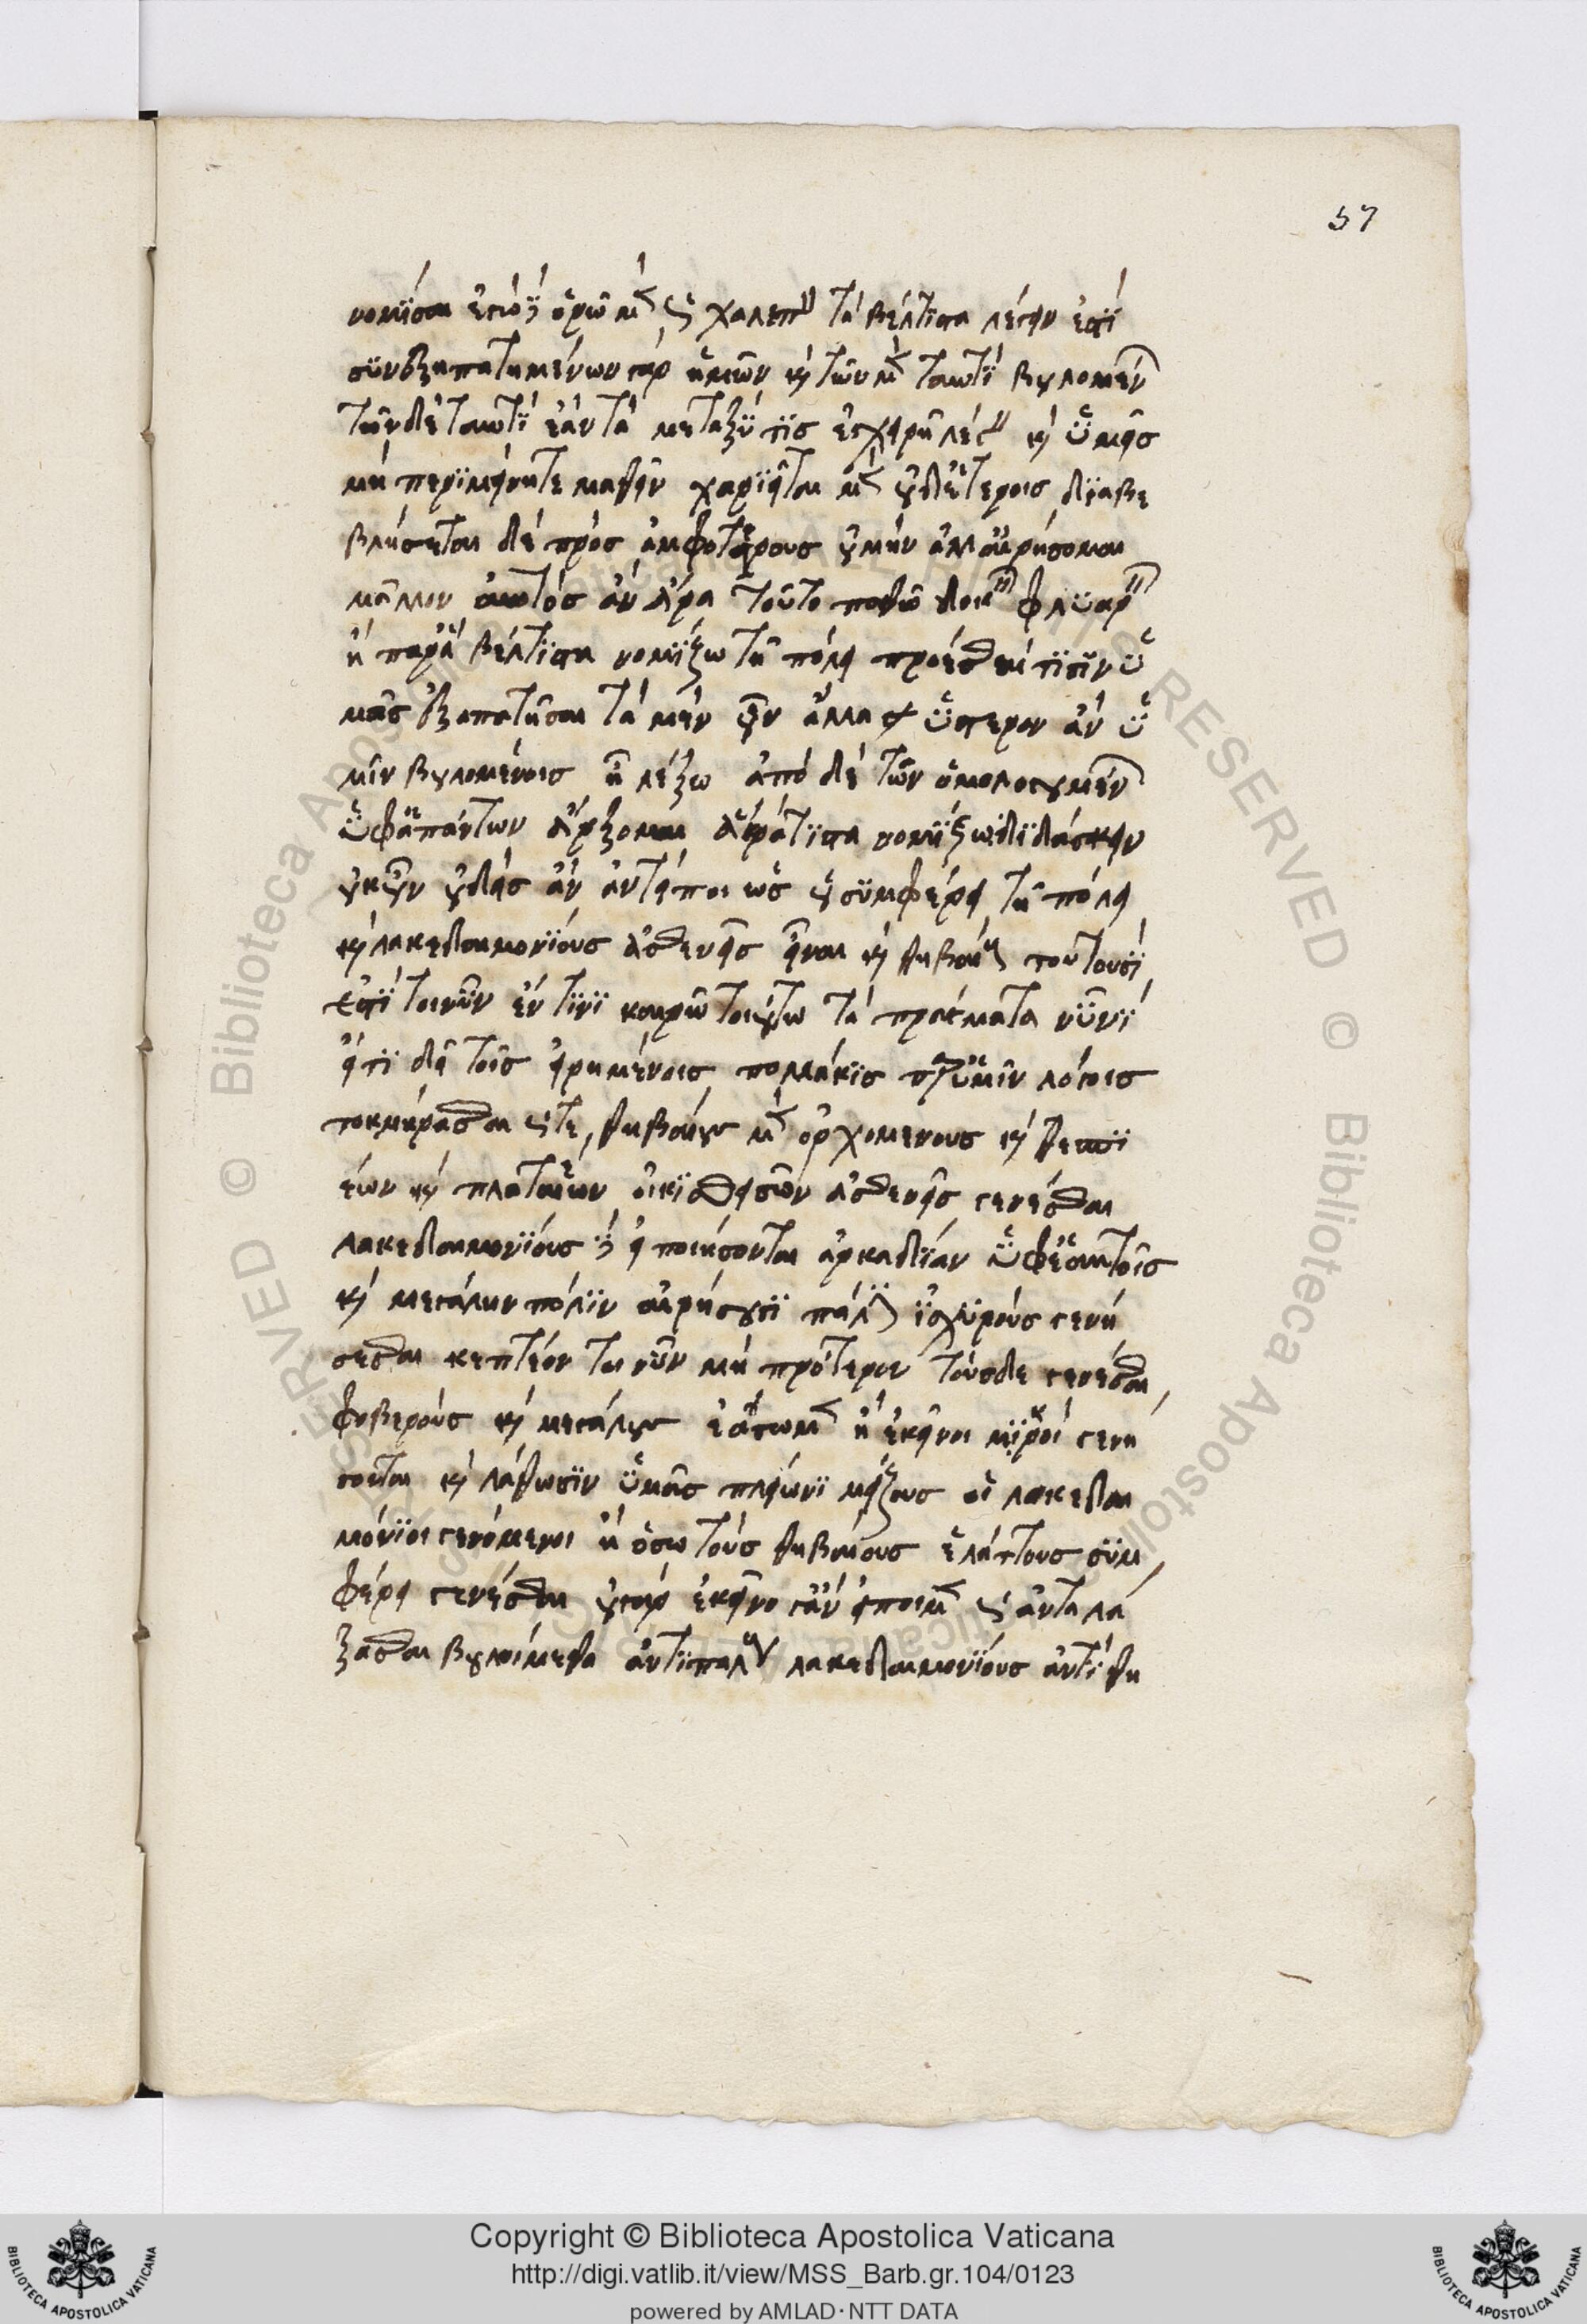 57
νομΐσαι ἐγὼ δ' ὁρῶ μὲν ὡς χαλεπὸν τὰ βέλτιστα λέγειν ἐστΐ
συνεξηπατημένων γὰρ ὑμῶν καὶ τῶν μὲν ταυτὶ βουλομένων
τῶν δὲ ταυτὶ ἐὰν τὰ μεταξύ τις ἐγχειρῇ λέγειν καὶ ὑμεῖς
μὴ περιμείνητε μαθεῖν χαριεῖται μὲν οὐδετέροις διαβε
βλήσεται δὲ πρὸς ἀμφοτέρους οὐ μὴν ἀλλ' αἱρήσομαι
μᾶλλον αὐτὸς ἂν ἄρα τοῦτο παθῶ δοκεῖν φλυαρεῖν
ἢ παρ' ἃ βέλτιστα νομίζω τῇ πόλει προέσθαι τισὶν ὑ
μᾶς ἐξαπατῆσαι τὰ μὲν οὖν ἄλλα ὕστερον ἂν ὑ
μῖν βουλομένοις ᾖ λέξω ἀπὸ δὲ τῶν ὁμολογουμένων
ὑφ' ἁπάντων ἄρξομαι ἃ κράτιστα νομίζω διδάσκειν
οὐκοῦν οὐδεὶς ἂν ἀντείποι ὡς οὐ συμφέρει τῇ πόλει
καὶ λακεδαιμονίους ἀσθενεῖς εἶναι καὶ θηβαίους τουτουσί
ἔστι τοίνυν ἔν τινι καιρῷ τοιούτῳ τὰ πράγματα νυνί
εἴ τι δεῖ τοῖς εἰρημένοις πολλάκις παρ' ὑμῖν λόγοις
τεκμήρασθαι ὥστε, θηβαίους μὲν ὀρχομενοῦς καὶ θεσπι
έων καὶ πλαταιῶν οἰκισθεισῶν ἀσθενεῖς γενέσθαι
λακεδαιμονίους δ' εἰ ποιήσονται ἀρκαδίαν ὑφ' ἑαυτοῖς
καὶ μεγάλην πόλιν αἱρήσουσι πάλιν ἰσχυροὺς γενή
σεσθαι κεπτέον τοίνυν μὴ πρότερον τούσδε γενέσθαι,
φοβεροὺς καὶ μεγάλους ἐάσωμεν ἢ ἐκεῖνοι μικροὶ γενή
σονται καὶ λάθωσιν ὑμᾶς πλείονι μείζους οἱ λακεδαι
μόνιοι γενόμενοι ἢ ὅσῳ τοὺς θηβαίους ἐλάττους συμ,
φέρει γενέσθαι οὐ γὰρ ἐκεῖνό γ' ἂν εἴποιμεν ὡς ἀνταλά
ξασθαι βουλοίμεθα ἀντιπάλους λακεδαιμονίους ἀντὶ θη
Copyright © Biblioteca Apostolica Vaticana
http://digi.vatlib.it/view/MSS_Barb.gr.104/0123
powered by AMLAD·NTT DATA